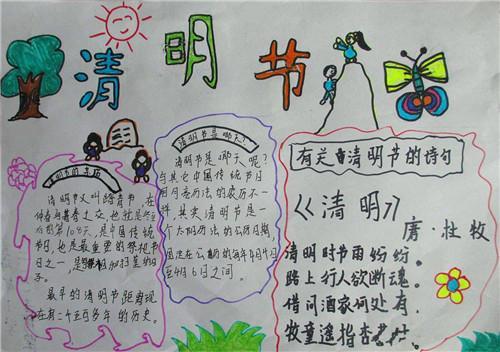 清明节
明节的来历
清明节又叫踏青节,在
仲春与暮春之交,也就是冬至
后的第108天,是中国传统
节日,也是最重要的祭祀节
日之一,是祭祖和扫墓的日
子。
最早的清明节距离现
在有二千五百多年的历史。
清明节是哪天?
清明节是哪天呢?
与其它中国传统节日
用月亮历法的农历不一
样,其实清明节是一
个太阳历法的公历日期,
固定在公历的每年4月4日
至4月6日之间。
有关清明节的诗句
《清明》
唐·牡牧
清明时节雨纷纷。
路上行人欲断魂。
借问酒家何处有。
牧童遥指杏